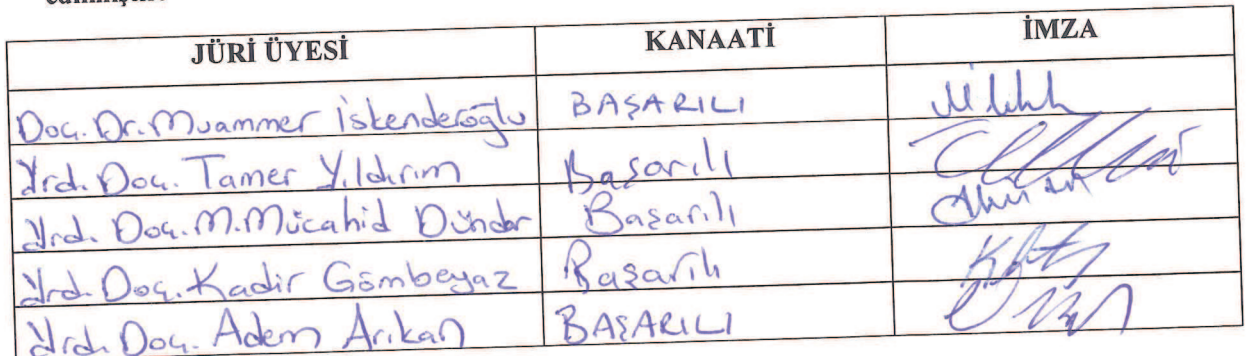 JÜRİ ÜYESİ KANAATİ İMZA
Doç. Dr. Muammer İskenderoğlu BAŞARILI
Yrd. Doç. Tamer Yıldırım Başarılı
Yrd. Doç. M. Mücahid Dündar Başarılı
Yrd. Doç. Kadir Gömbeyaz Başarılı
Yrd. Doç. Adem Arıkan BAŞARILI